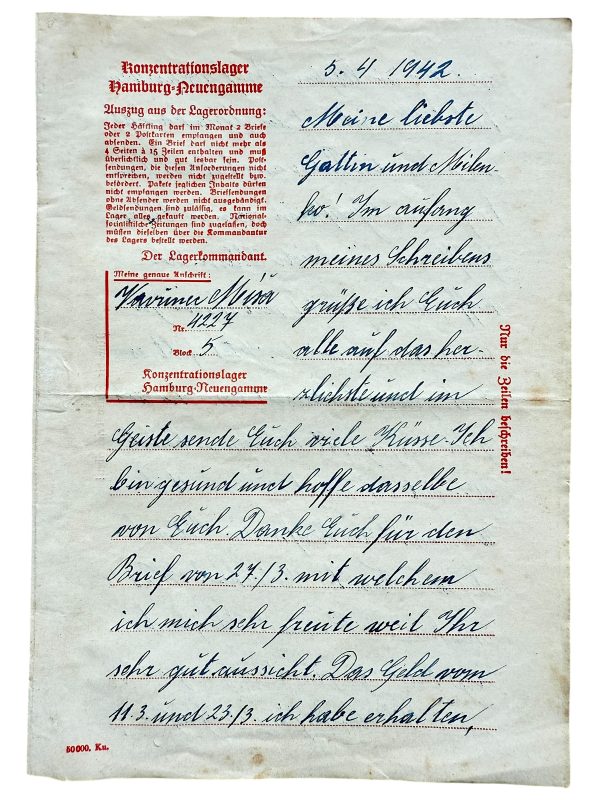 Konzentrationslager
Hamburg-Neuengamme
Auszug aus der Lagerordnung:
Jeder Häftling darf im Monat 2 Briefe
oder 2 Postkarten empfangen und auch
absenden. Ein Brief darf nicht mehr als
4 Seiten à 15 Zeilen enthalten und muß
übersichtlich und gut lesbar sein. Post-
sendungen, die diesen Anforderungen nicht
entsprechen, werden nicht zugestellt bzw.
befördert. Pakete jeglichen Inhalts dürfen
nicht empfangen werden. Briefsendungen
ohne Absender werden nicht ausgehändigt.
Geldsendungen sind zulässig, es kann im
Lager alles gekauft werden. National-
sozialistische Zeitungen sind zugelassen, doch
müssen dieselben über die Kommandantur
des Lagers bestellt werden.
Der Lagerkommandant.
Meine genaue Anschrift:
Miša
Nr. 4227
Block 5
Konzentrationslager
Hamburg-Neuengamme
5. 4 1942.
Meine liebste
Gattin und Milen-
ko! Im anfang
meines Schreibens
grüße ich Euch
alle auf das her-
zlichste und im
Geiste sende Euch viele Küsse. Ich
bin gesund und hoffe dasselbe
von Euch. Danke Euch für den
Brief von 27./3. mit welchem
ich mich sehr freute weil Ihr
sehr gut aussicht. Das Geld vom
11.3. und 23./3. ich habe erhalten,
Nur die Zeilen beschreiben!
50000. Ku.